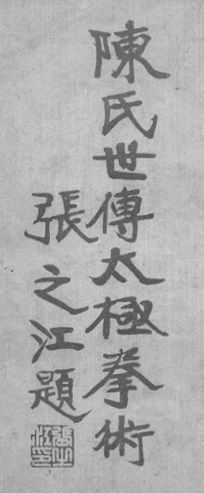 陳氏世傳太極拳術
張之江題